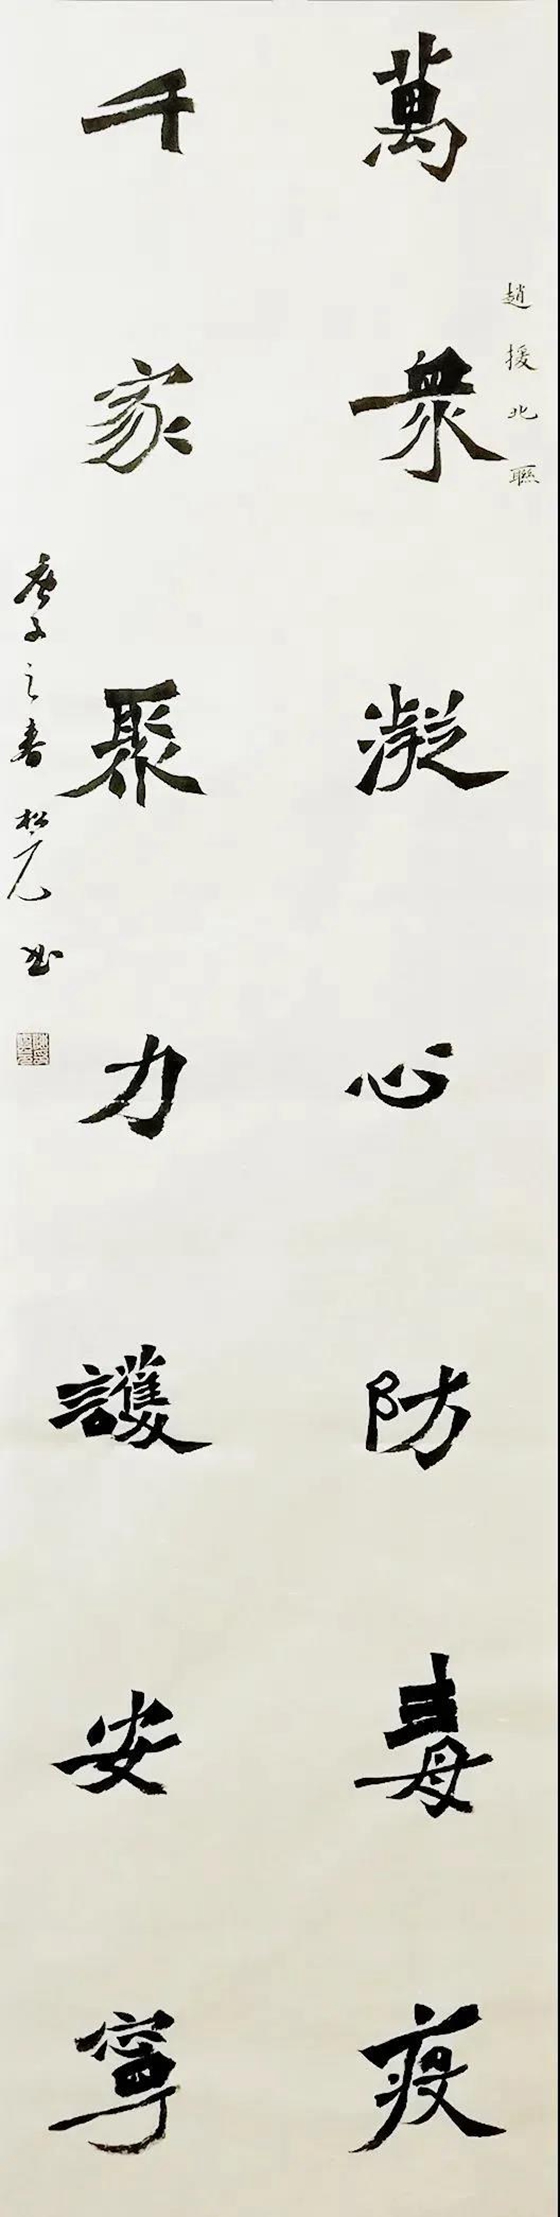 趙援北聯
萬衆凝心防毒疫
千家聚力護安寧
庚子之春松元书